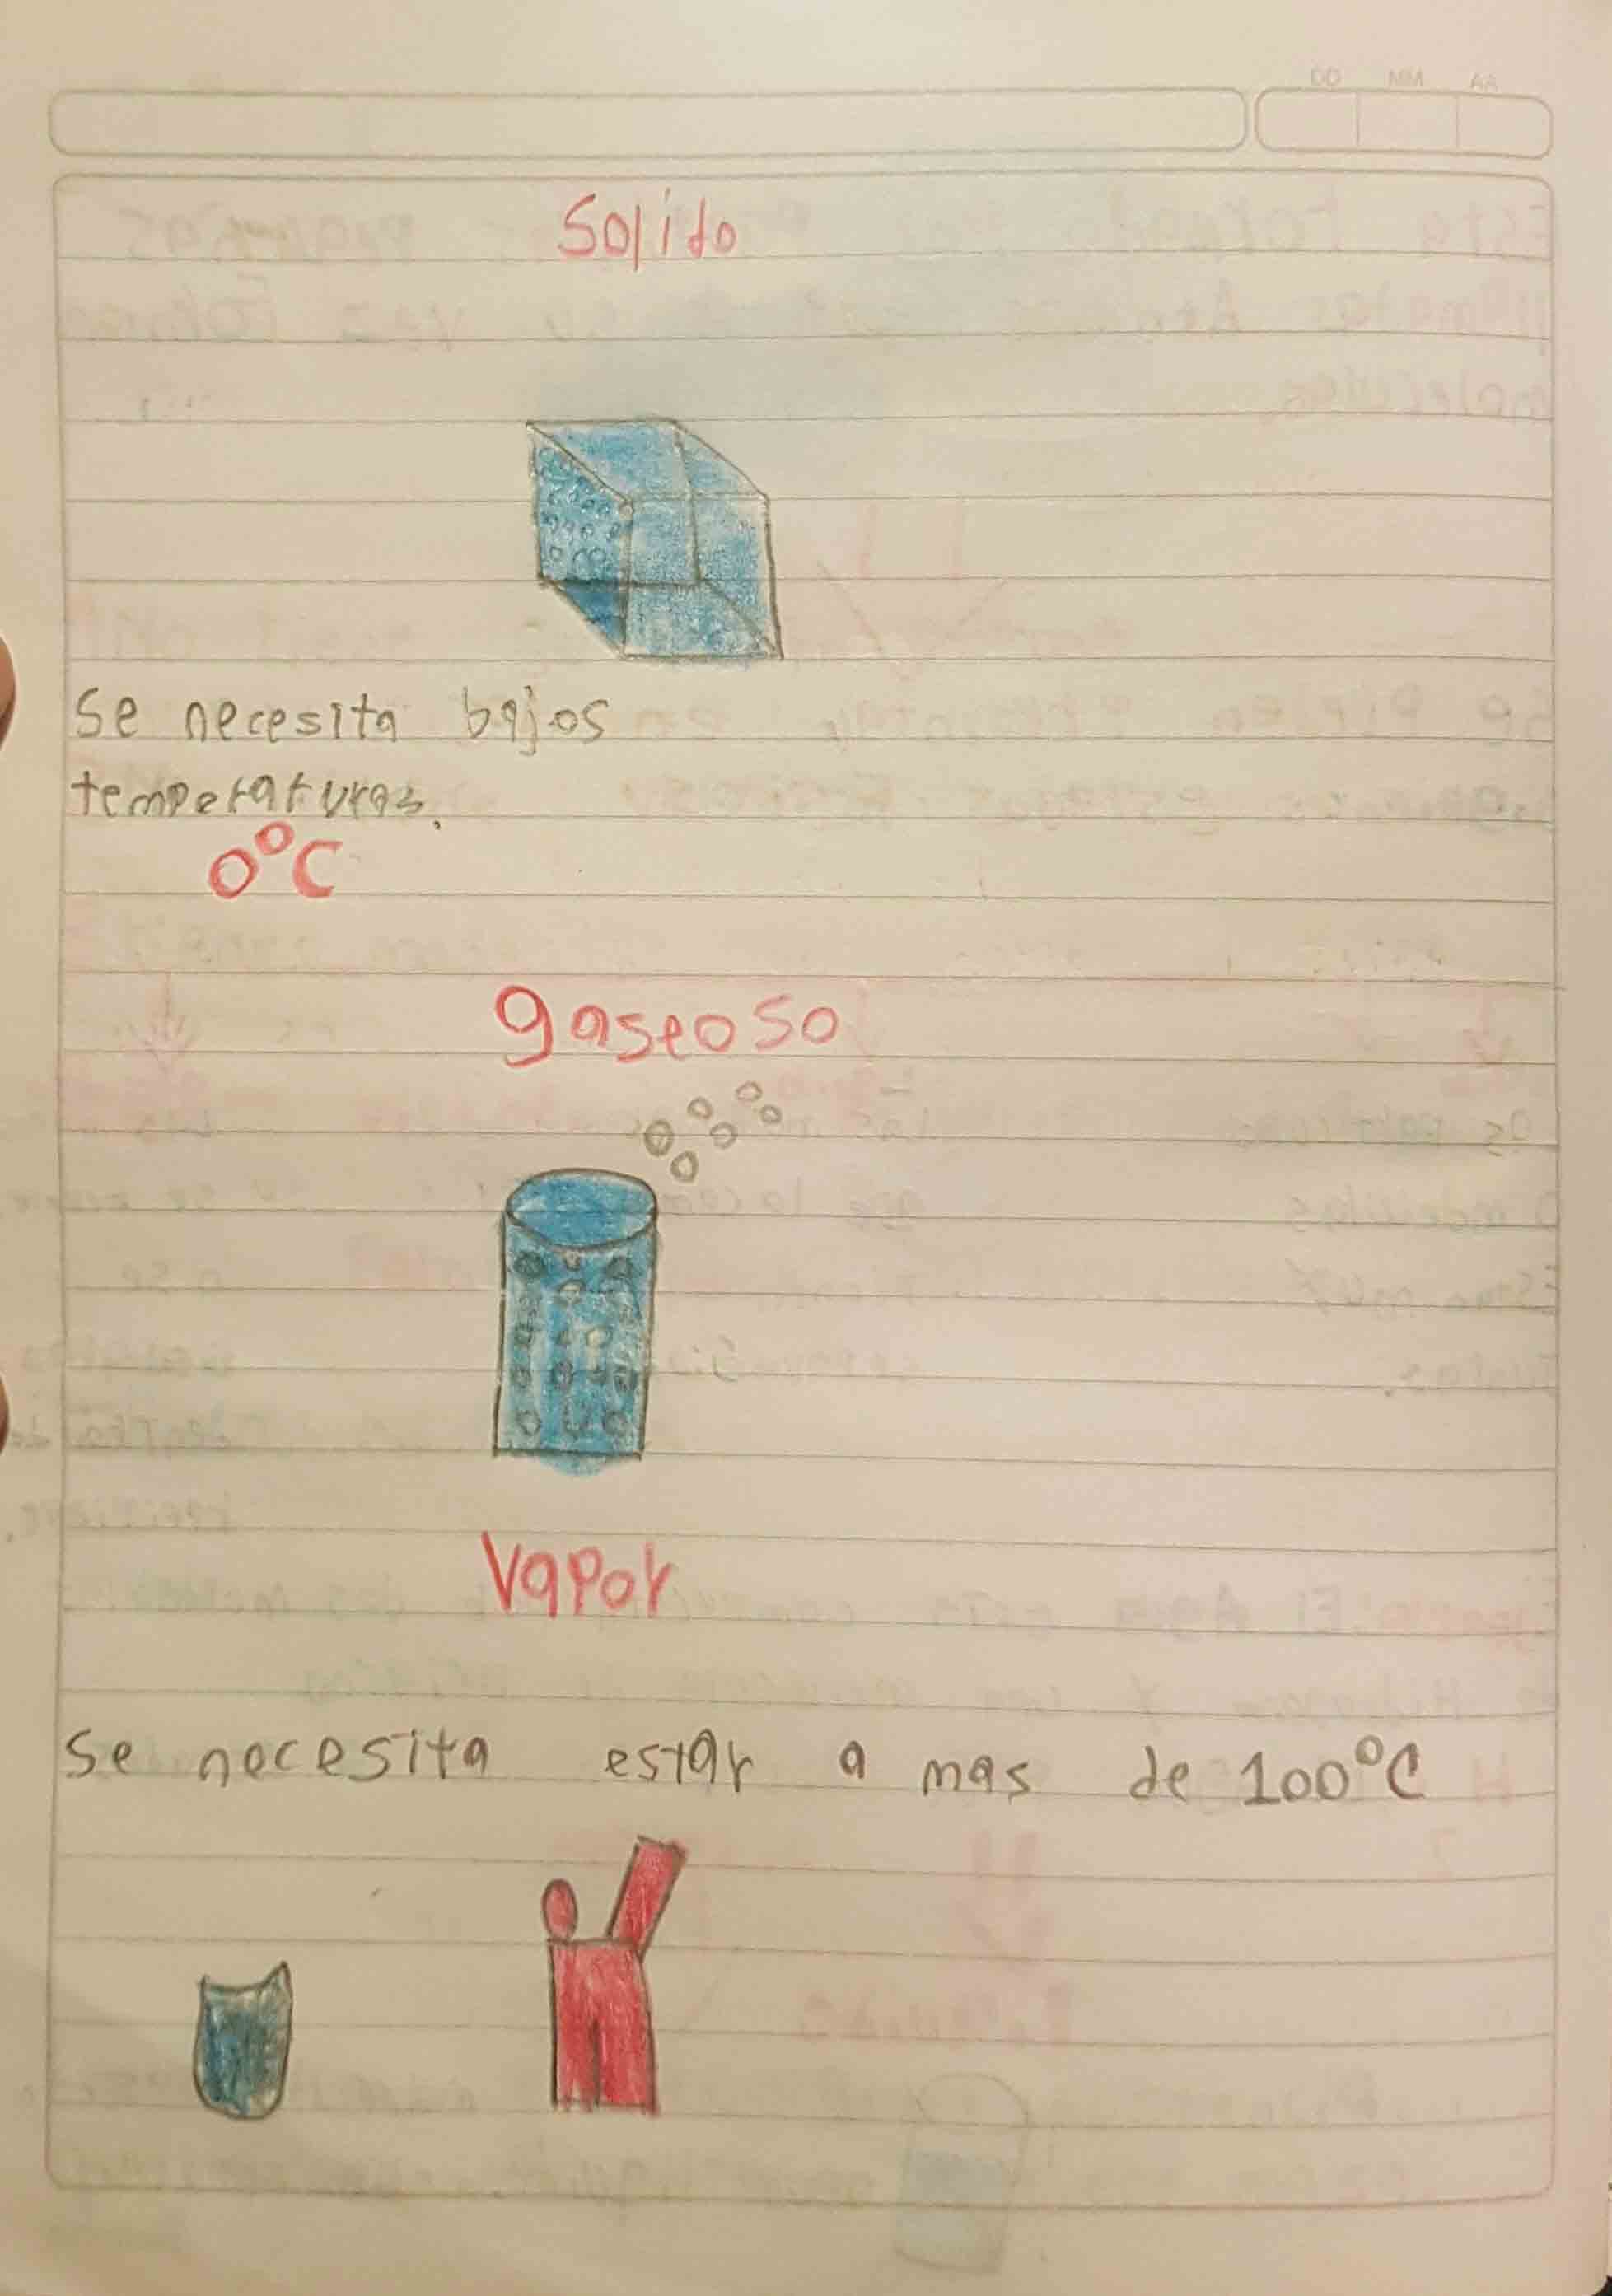 DD MM AA
Solido
Se necesita bajos
temperaturas.
0°C
gaseoso
Vapor
Se necesita estar a mas de 100°C